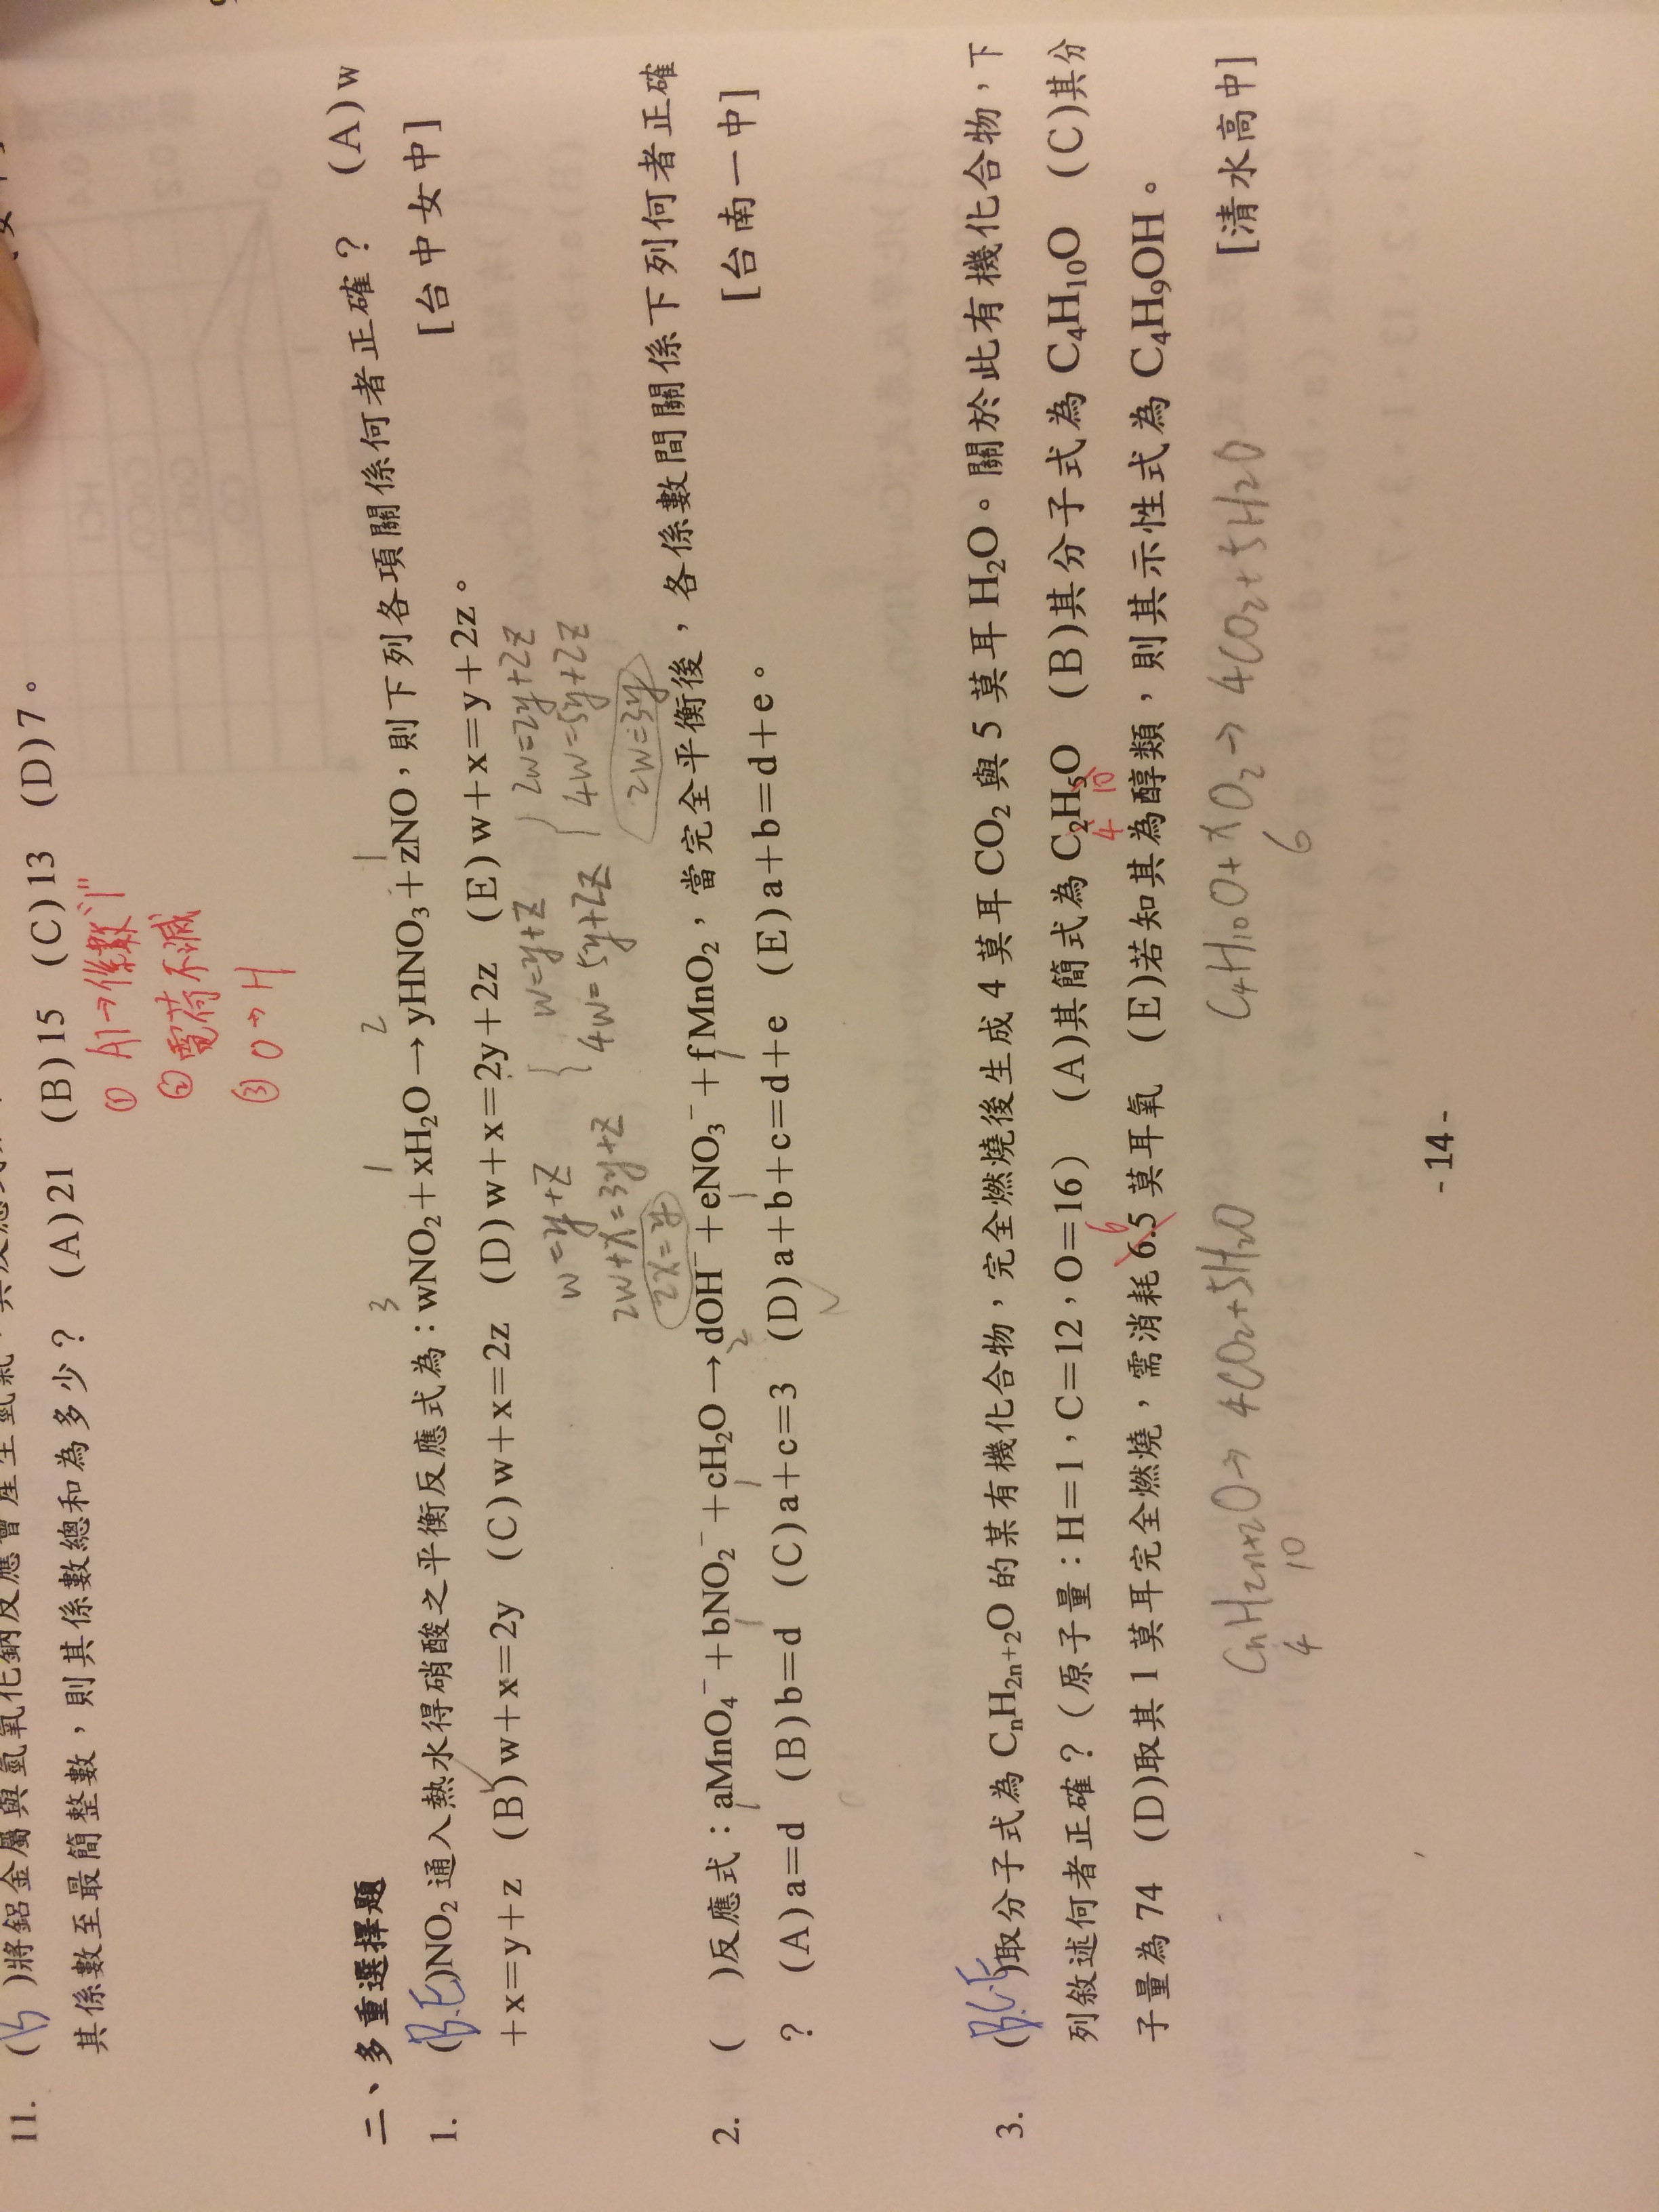 11. (B)將鋁金屬與氫氧化鈉反應會產生氫氣，其反應式
其係數至最簡整數，則其係數總和為多少？ (A)21 (B)15 (C)13 (D)7。
① Al→係數"1"
② 電荷不滅
③ O→H
二、多重選擇題
1. (B.E)NO₂通入熱水得硝酸之平衡反應式為：wNO₂+xH₂O→yHNO₃+zNO，則下列各項關係何者正確？ (A)w
3 1 2 1
+x=y+z (B)w+x=2y (C)w+x=2z (D)w+x=2y+2z (E)w+x=y+2z。 [台中女中]
w=y+z
2w+x=3y+z
2x=y
w=y+z
4w=5y+2z
2w=2y+2z
4w=5y+2z
2w=3y
2. ( )反應式：aMnO₄⁻+bNO₂⁻+cH₂O→dOH⁻+eNO₃⁻+fMnO₂，當完全平衡後，各係數間關係下列何者正確
1 1 2 1
? (A)a=d (B)b=d (C)a+c=3 (D)a+b+c=d+e (E)a+b=d+e。 [台南一中]
3. (B.C.E)取分子式為CₙH₂ₙ₊₂O的某有機化合物，完全燃燒後生成4莫耳CO₂與5莫耳H₂O。關於此有機化合物，下
列敘述何者正確？（原子量：H=1，C=12，O=16） (A)其簡式為C₂H₅O (B)其分子式為C₄H₁₀O (C)其分
4 10
子量為74 (D)取其1莫耳完全燃燒，需消耗6.5莫耳氧 (E)若知其為醇類，則其示性式為C₄H₉OH。
6
[清水高中]
CₙH₂ₙ₊₂O→4CO₂+5H₂O
4 10
C₄H₁₀O+xO₂→4CO₂+5H₂O
6
- 14 -